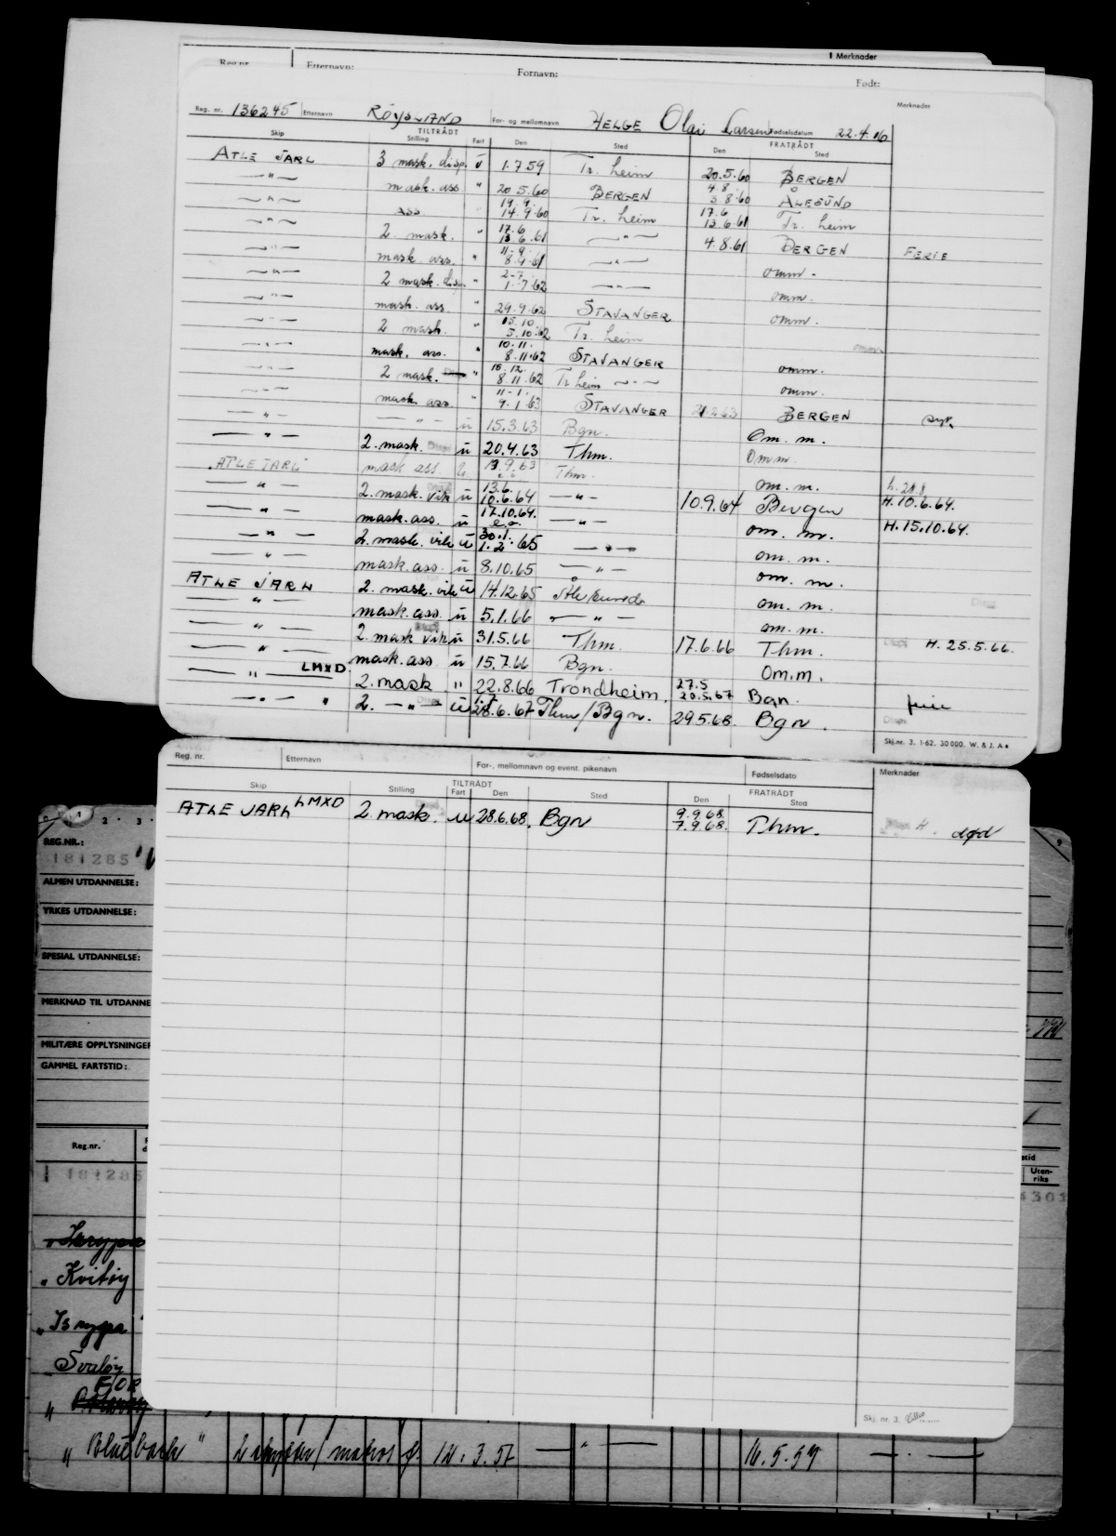 Merknader
Reg.nr. Etternavn: Fornavn: Født:
Merknader
Reg. nr. 136245 Etternavn RÖYSLAND For- og mellomnavn HELGE Olai Larsen Fødselsdatum 22.4.06
TILTRÅDT FRATRÅDT
Skip Stilling Fart Den Sted Den Sted
ATLE JARL 3 mask. disp. ü 1.7 59 Tr. heim 20.5.60 BERGEN
—"— mask. ass " 20 5.60 BERGEN 4 8 3 8.60 ÅLESUND
—"— ass 19.9. 14.9.60 Tr. heim 17.6 13.6.61 Tr. heim
—"— 2. mask. " 17.6 13.6.61 —"— 4.8.61 BERGEN FERIE
—"— mask. ass. " 11.9. 8.9.61 —"— omm.
—"— 2 mask. disp. " 2-7 1.7.62 —"— omm.
—"— mask. ass. " 29.9.62 STAVANGER omm.
—"— 2 mask. " 15.10. 5.10.62 Tr. heim omm.
—"— mask. ass. " 10.11. 8.11.62 STAVANGER omm.
—"— 2 mask. " 18.12. 8.11.62 Tr heim —"— omm.
—"— mask. ass. " 11-1. 9.1.63 STAVANGER BERGEN syk
—"— —"— ü 15.3.63 Bgn. Om. m.
—"— 2. mask. Disp ü 20.4.63 Thm. Omm.
ATLE JARL mask ass ü 9.63 Thm. om. m. h. 28.8
—"— 2. mask. vik ü 13.6. 10.6.64 —"— 10.9.64 Bergen H. 10.6.64.
—"— mask. ass. ü 17.10.64. —"— om. m. H. 15.10.64.
—"— 2. mask. vik ü 30.1. 1.2.65 —"— om. m.
—"— mask. ass. ü 8.10.65 —"— om. m.
ATLE JARL 2. mask. vik ü 14.12.65 Ålesund om. m.
—"— mask. ass. ü 5.1.66 —"— om. m.
—"— 2. mask vik ü 31.5.66 Thm. 17.6.66 Thm. H. 25.5.66.
—"— mask. ass ü 15.7.66 Bgn. Om.m.
—"— LMXD 2. mask " 22.8.66 Trondheim. 27.5 20.5.67 Bgn. ferie
—"— " 2. —"— ü 28.6.67 Thm/Bgn. 29.5.68. Bgn.
Skj.nr. 3. 1-62. 30 000. W. & J. A s
Reg. nr. Etternavn For-, mellomnavn og event. pikenavn Fødselsdato Merknader
TILTRÅDT FRATRÅDT
Skip Stilling Fart Den Sted Den Sted
ATLE JARL LMXD 2. mask. u 28.6.68. Bgn 9.9.68. 7.9.68. Thm. H. død
2. 3.
REG.NR.:
181285
ALMEN UTDANNELSE:
YRKES UTDANNELSE:
SPESIAL UTDANNELSE:
MERKNAD TIL UTDANNE
MILITÆRE OPPLYSNINGER
GAMMEL FARTSTID:
Reg.nr.
181285
Uten-
riks
" Kvitøy
" Isrypa
Svaløy
Skj. nr. 3.
" Blueback " 12.3.57 —"— 16.5.57 —"—